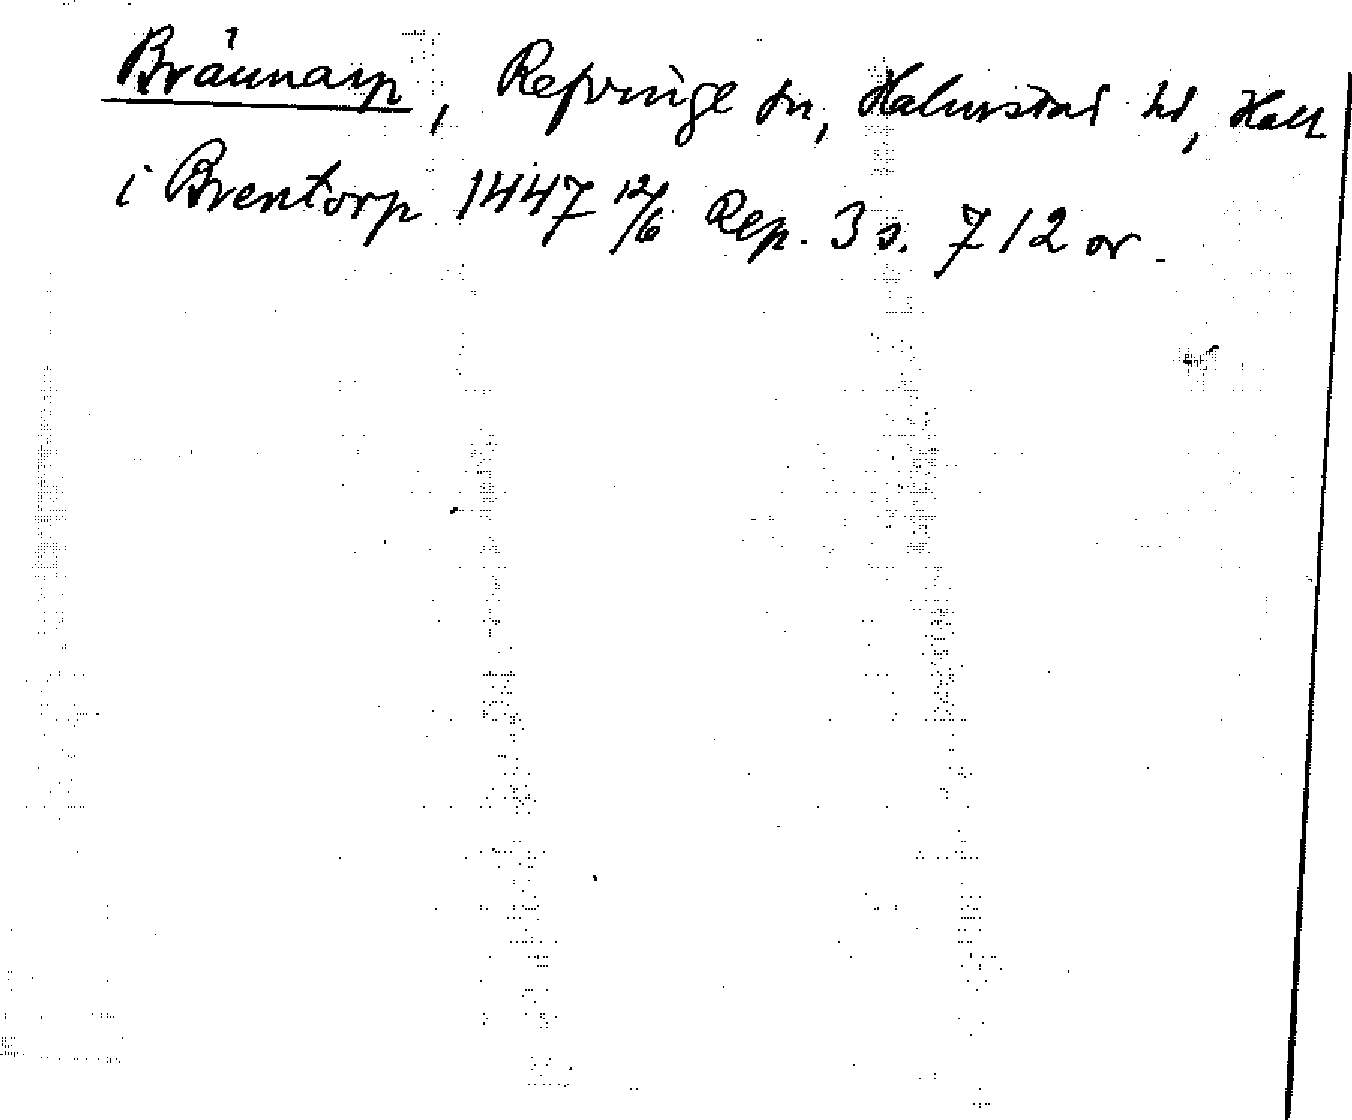 Brännarp, Refvinge sn, Halmstad hd, Hall
i Brentorp 1447 12/6 Rep. 3 s. 712 or.